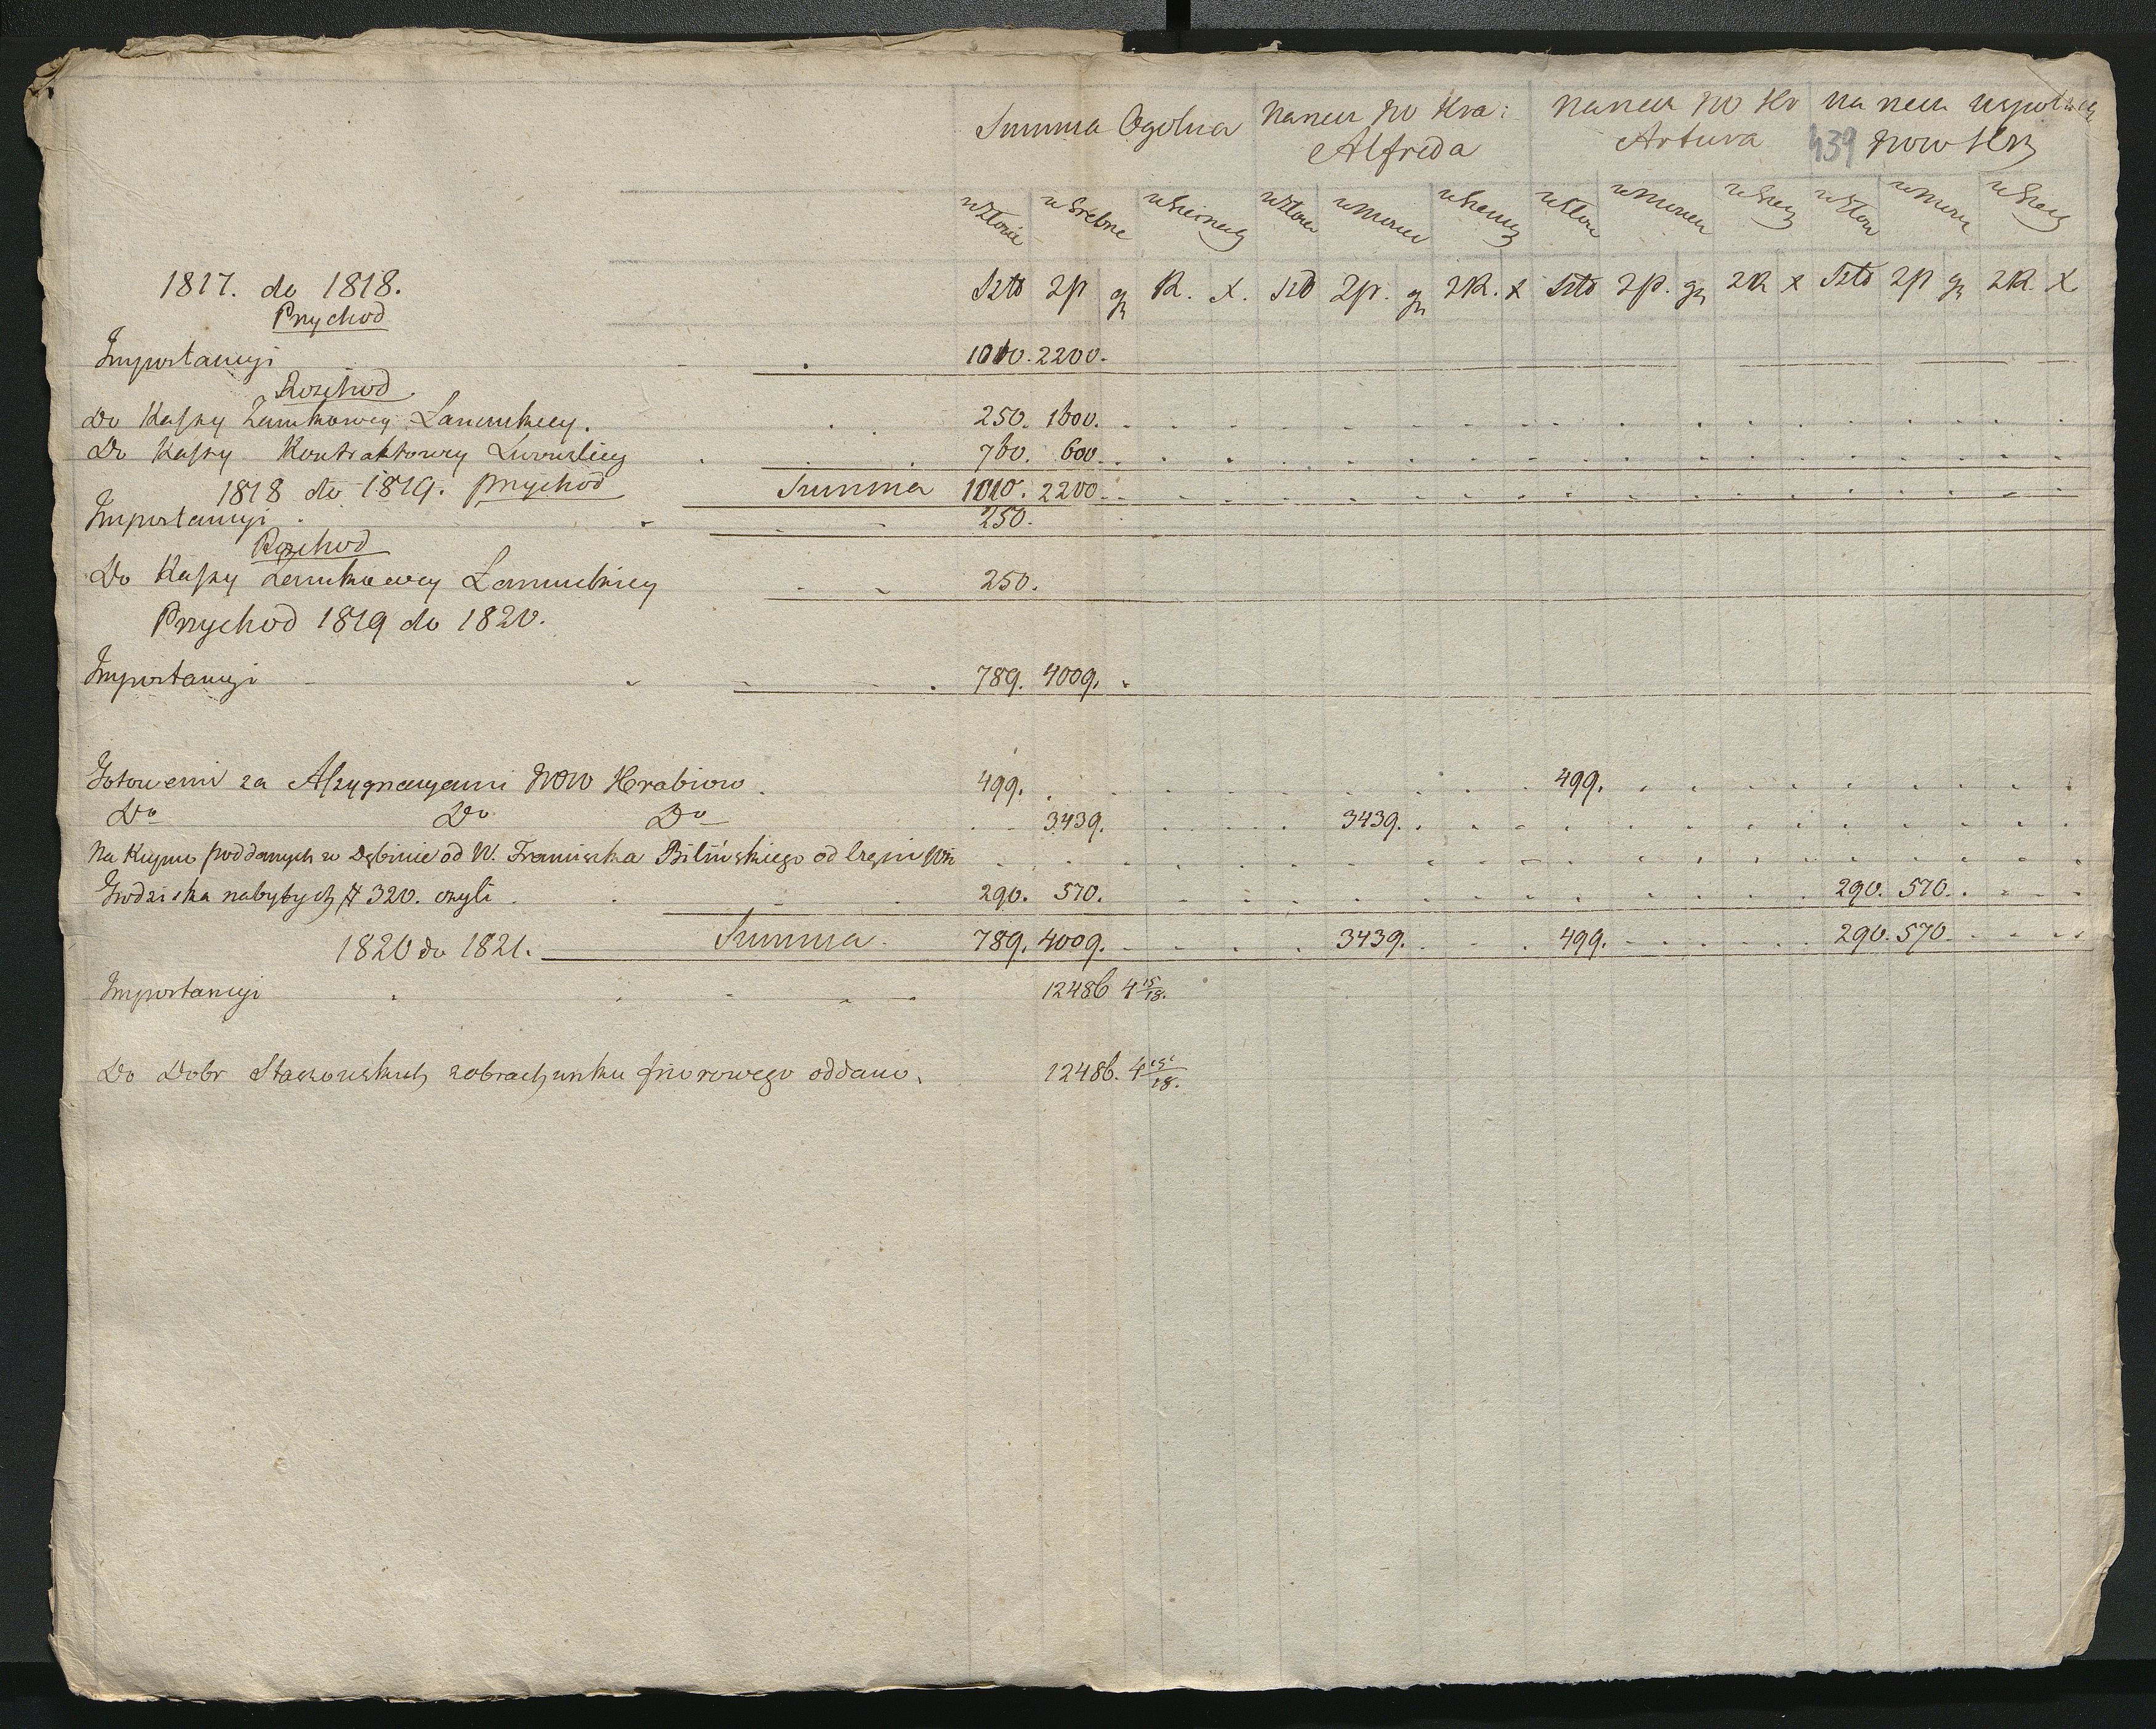 Summa Ogolna
na rzecz JW Hra: Alfreda
na rzecz JW Hr Artura
na rzecz wspolną JWW Hr
439
w Złocie w Srebrze w Scheinach w Złocie w Monec w Schein w Złoc w Monec w Schei w Złoc w Mone w Schei
Sztd Zp gr R. X. Sztd Zp. gr ZR. X Sztd Zp. gr ZR X Sztd Zp gr ZR X
1817. do 1818.
Przychod
Importancyi 1010. 2200.
Rozchod
Do Kassy Zamkowey Lancuckiey. 250. 1600.
Do Kassy Kontraktowey Lwowskiey 760. 600.
Summa 1010. 2200.
1818 do 1819. przychod
Importancyi 250.
Rozchod
Do Kassy Zamkowey Lancuckiey 250.
Przychod 1819 do 1820.
Importancyi 789. 4009.
Gotowemi za Assygnacyami JWW Hrabiow 499. 499.
Do Do Do 3439. 3439.
Na Kupno poddanych w Dębinie od W. Franciszka Bilińskiego od
Grodziska nabytych # 320. czyli 290. 570. 290. 570.
Summa 789. 4009. 3439. 499. 290. 570.
1820 do 1821.
Importancyi 12486 4 15/18.
Do Dobr Staszowskich zobrachunku oddano. 12486. 4 15/18.